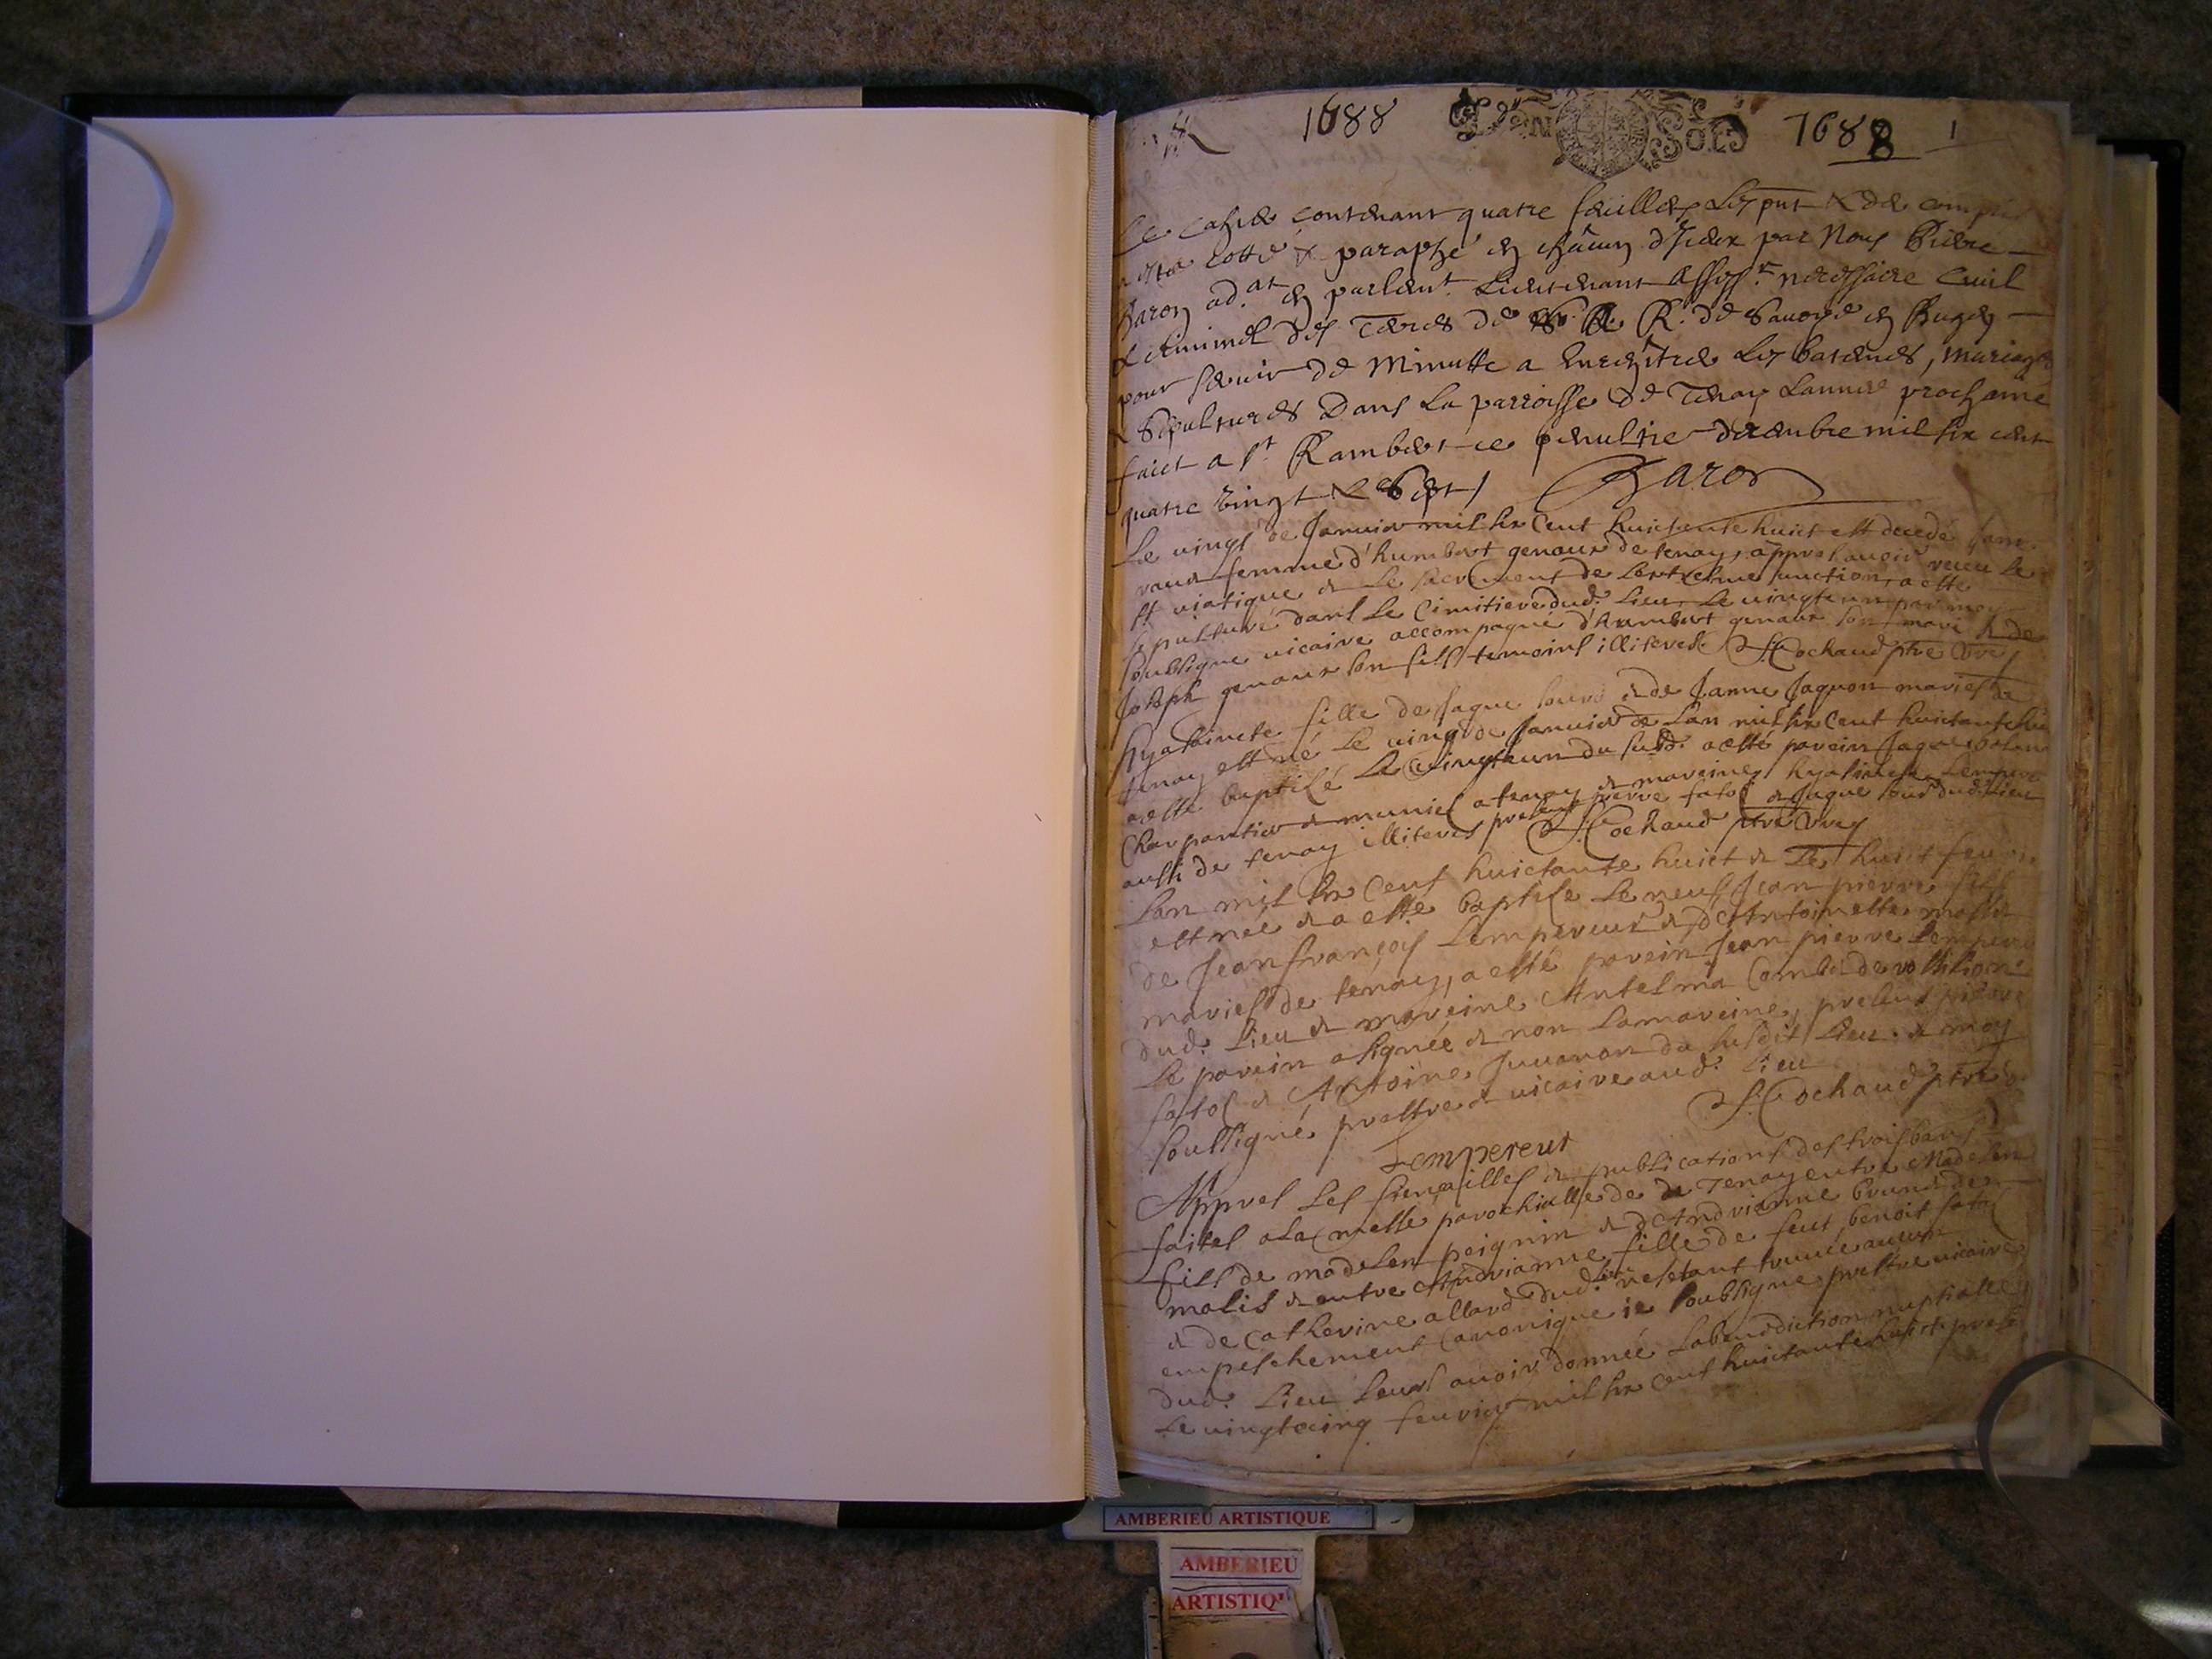 1688 SOLS 1688 1
Le cahier contenant quatre feuilles le put & de
a esté cotté & paraphé en chacun d'iceux par Nous Pierre
Baron ad.at en parlent. Lieutenant Assess.r necessaire Civil
& criminel des Terres de S. A. R. de Savoye en Bugey
pour servir de Minutte a Enregistrer les batemes, mariages
& Sepultures Dans La parroisse de Tenay Lannee prochaine
faict a st Rambert ce penultie decembre mil six cent
quatre vingt & Sept / Baron
Le vingt de Janvier mil six Cent huictente huict est decedé
femme d'humbert genaux de tenay, appres avoir receu le
st viatique & Le sacrement de Lextreme unction, a esté
sepulturé dans Le Cimitiere dud. Lieu Le vingteun par moy
soubsigne vicaire accompagné d'humbert genaux son mari & de
Joseph genaux son fils temoins illiteres. Cochaud ptre vire
Hyathincte fille de Jaque & de Janne Jaquon maries de
tenay est né Le vingt de Janvier de Lan mil six Cent huictante huict
a esté baptisé Le vingteun du susd. a esté parein Jaque
Charpantier & munier a tenay & mareine hyatincte Lempereur
aussi de tenay illiteres presents pierre fatol & Jaque dud. Lieu
Cochaud ptre vire
Lan mil six Cent huictante huict & Le huict fevrier
est née & a esté baptisé Le neuf Jean pierre fils
de Jean françois Lempereur & d'Antoinette
mariés de tenay, a esté parein Jean pierre Lempereur
dud. Lieu & mareine Antelma Combe de
Le parein a signée & non La mareine, presents pierre
fatol & Antoine Juvanon du susdit Lieu. & moy
soussigné prestre & vicaire aud. Lieu
Lempereur Cochaud ptre v
Appres Les fiensailles & publications des trois bans
faites a La messe parochialle de de Tenay entre Madelen
fils de madelen peignin & d'Andrianne brun de
malis & entre Andrianne fille de feut benoit fatol
& de Catherine allard dud. Lieu ne sestant trouvée aucun
empeschement Canonique je soubsigne prestre vicaire
dud. Lieu Leurs avoir donnée La benediction nuptialle
Le vingtcinq fevrier mil six cent huictante huict
AMBERIEU ARTISTIQUE
AMBERIEU
ARTISTIQU